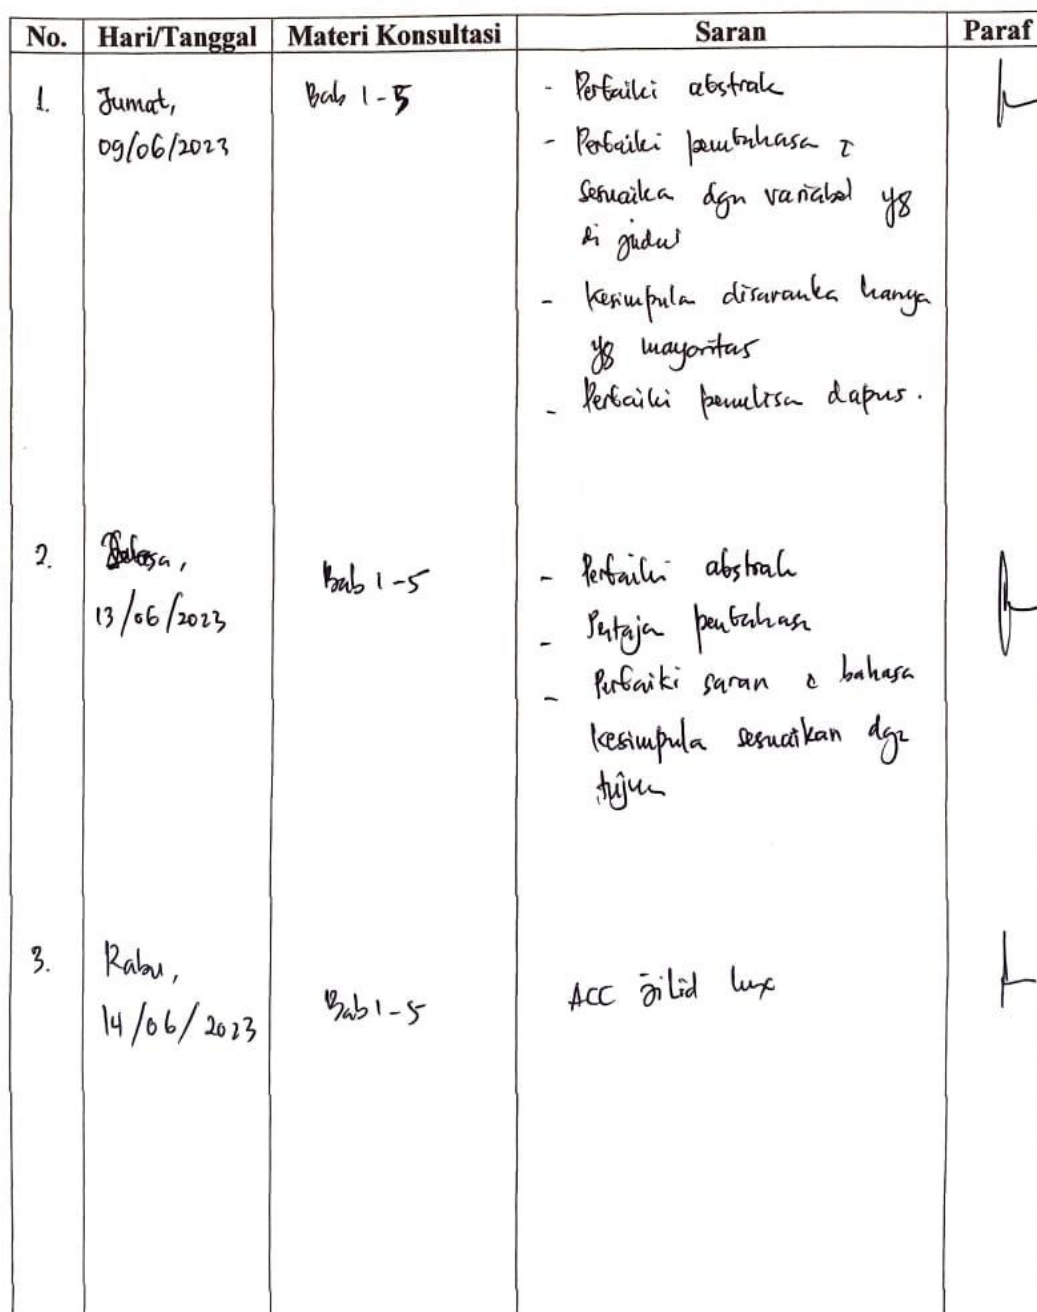 No. Hari/Tanggal Materi Konsultasi Saran Paraf
1. Jumat, Bab 1-5 - Perbaiki abstrak
09/06/2023 - Perbaiki pembahasa
sesuaika dgn variabel yg
di judul
- Kesimpula disaranka hanya
yg mayoritas
- Perbaiki penulisa dapus.
2. Selasa, Bab 1-5 - Perbaiki abstrak
13/06/2023 - Pertaja pembahasa
- Perbaiki saran bahasa
kesimpula sesuaikan dgn
tujua
3. Rabu, Bab 1-5 ACC jilid lux
14/06/2023